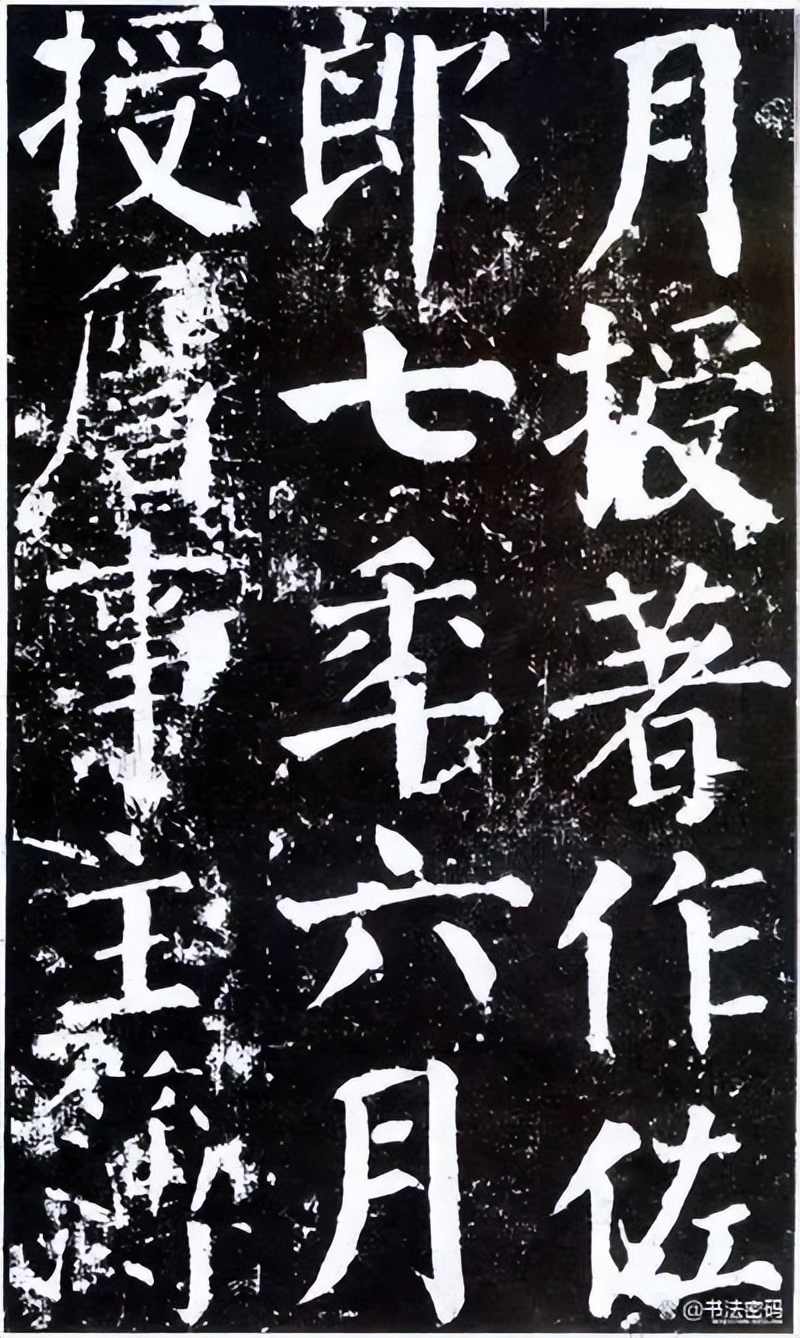 月授著作佐
郎七年六月
授詹事主簿
@书法密码